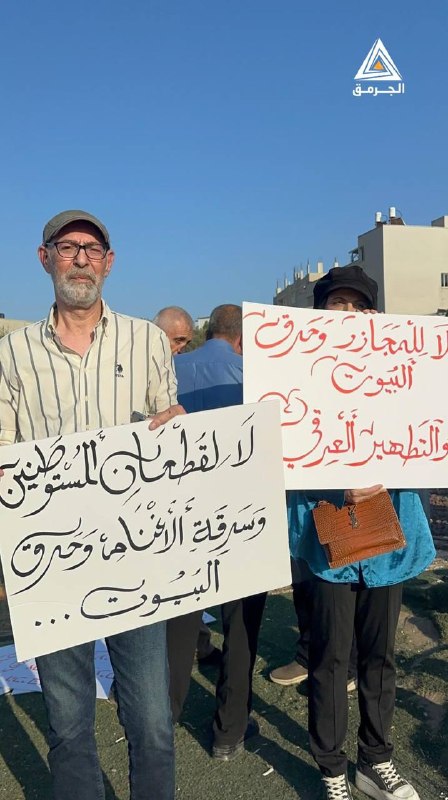 الجرمق
لا للمجازر وحرق
البيوت
والتطهير العرقي
لا لقطعان المستوطنين
وسرقة الأغنام وحرق
البيوت...